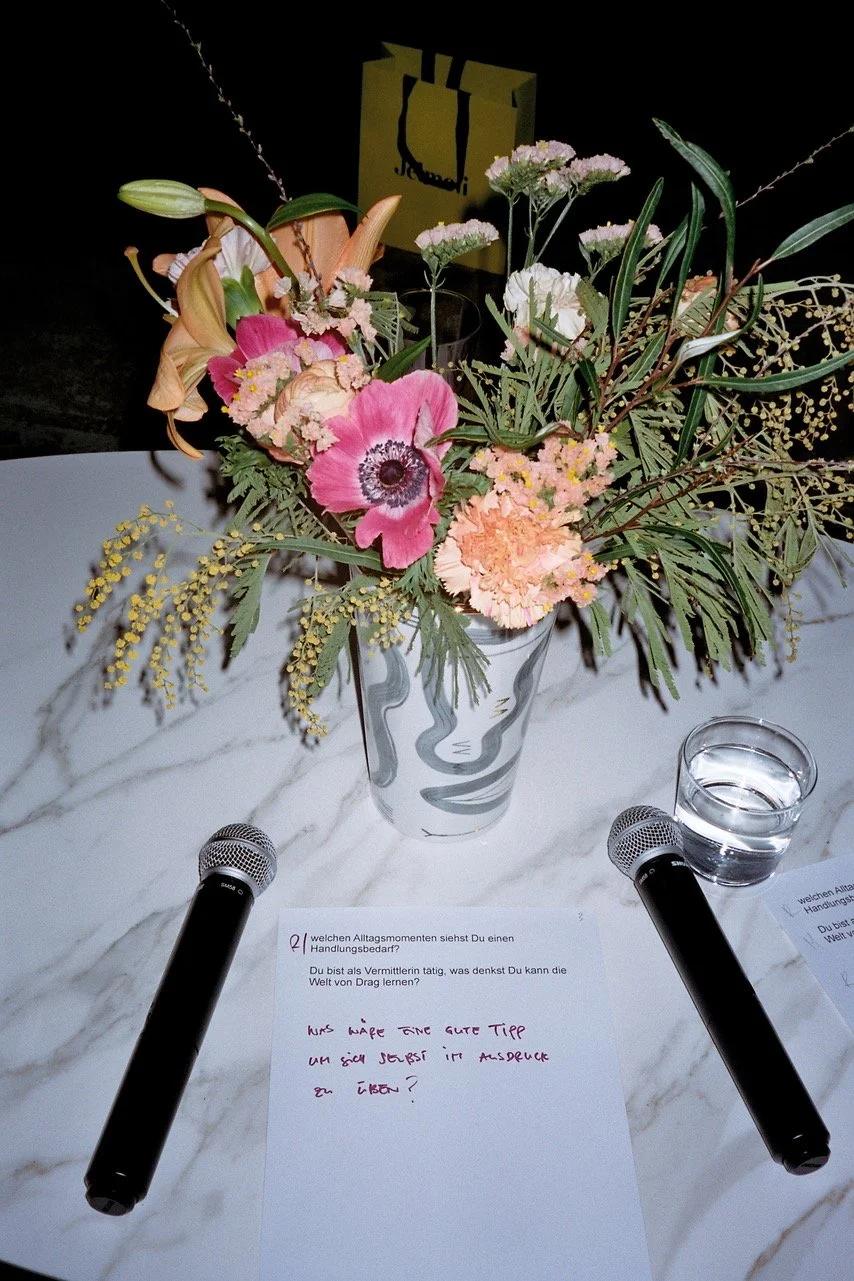 Jelmoli
SM58
SHU
3
R/ welchen Alltagsmomenten siehst Du einen
Handlungsbedarf?
Du bist als Vermittlerin tätig, was denkst Du kann die
Welt von Drag lernen?
WAS WÄRE EINE GUTE TIPP
UM SICH SELBST IM AUSDRUCK
ZU ÜBEN?
welchen Allta
Handlungsb
Du bist a
Welt vo